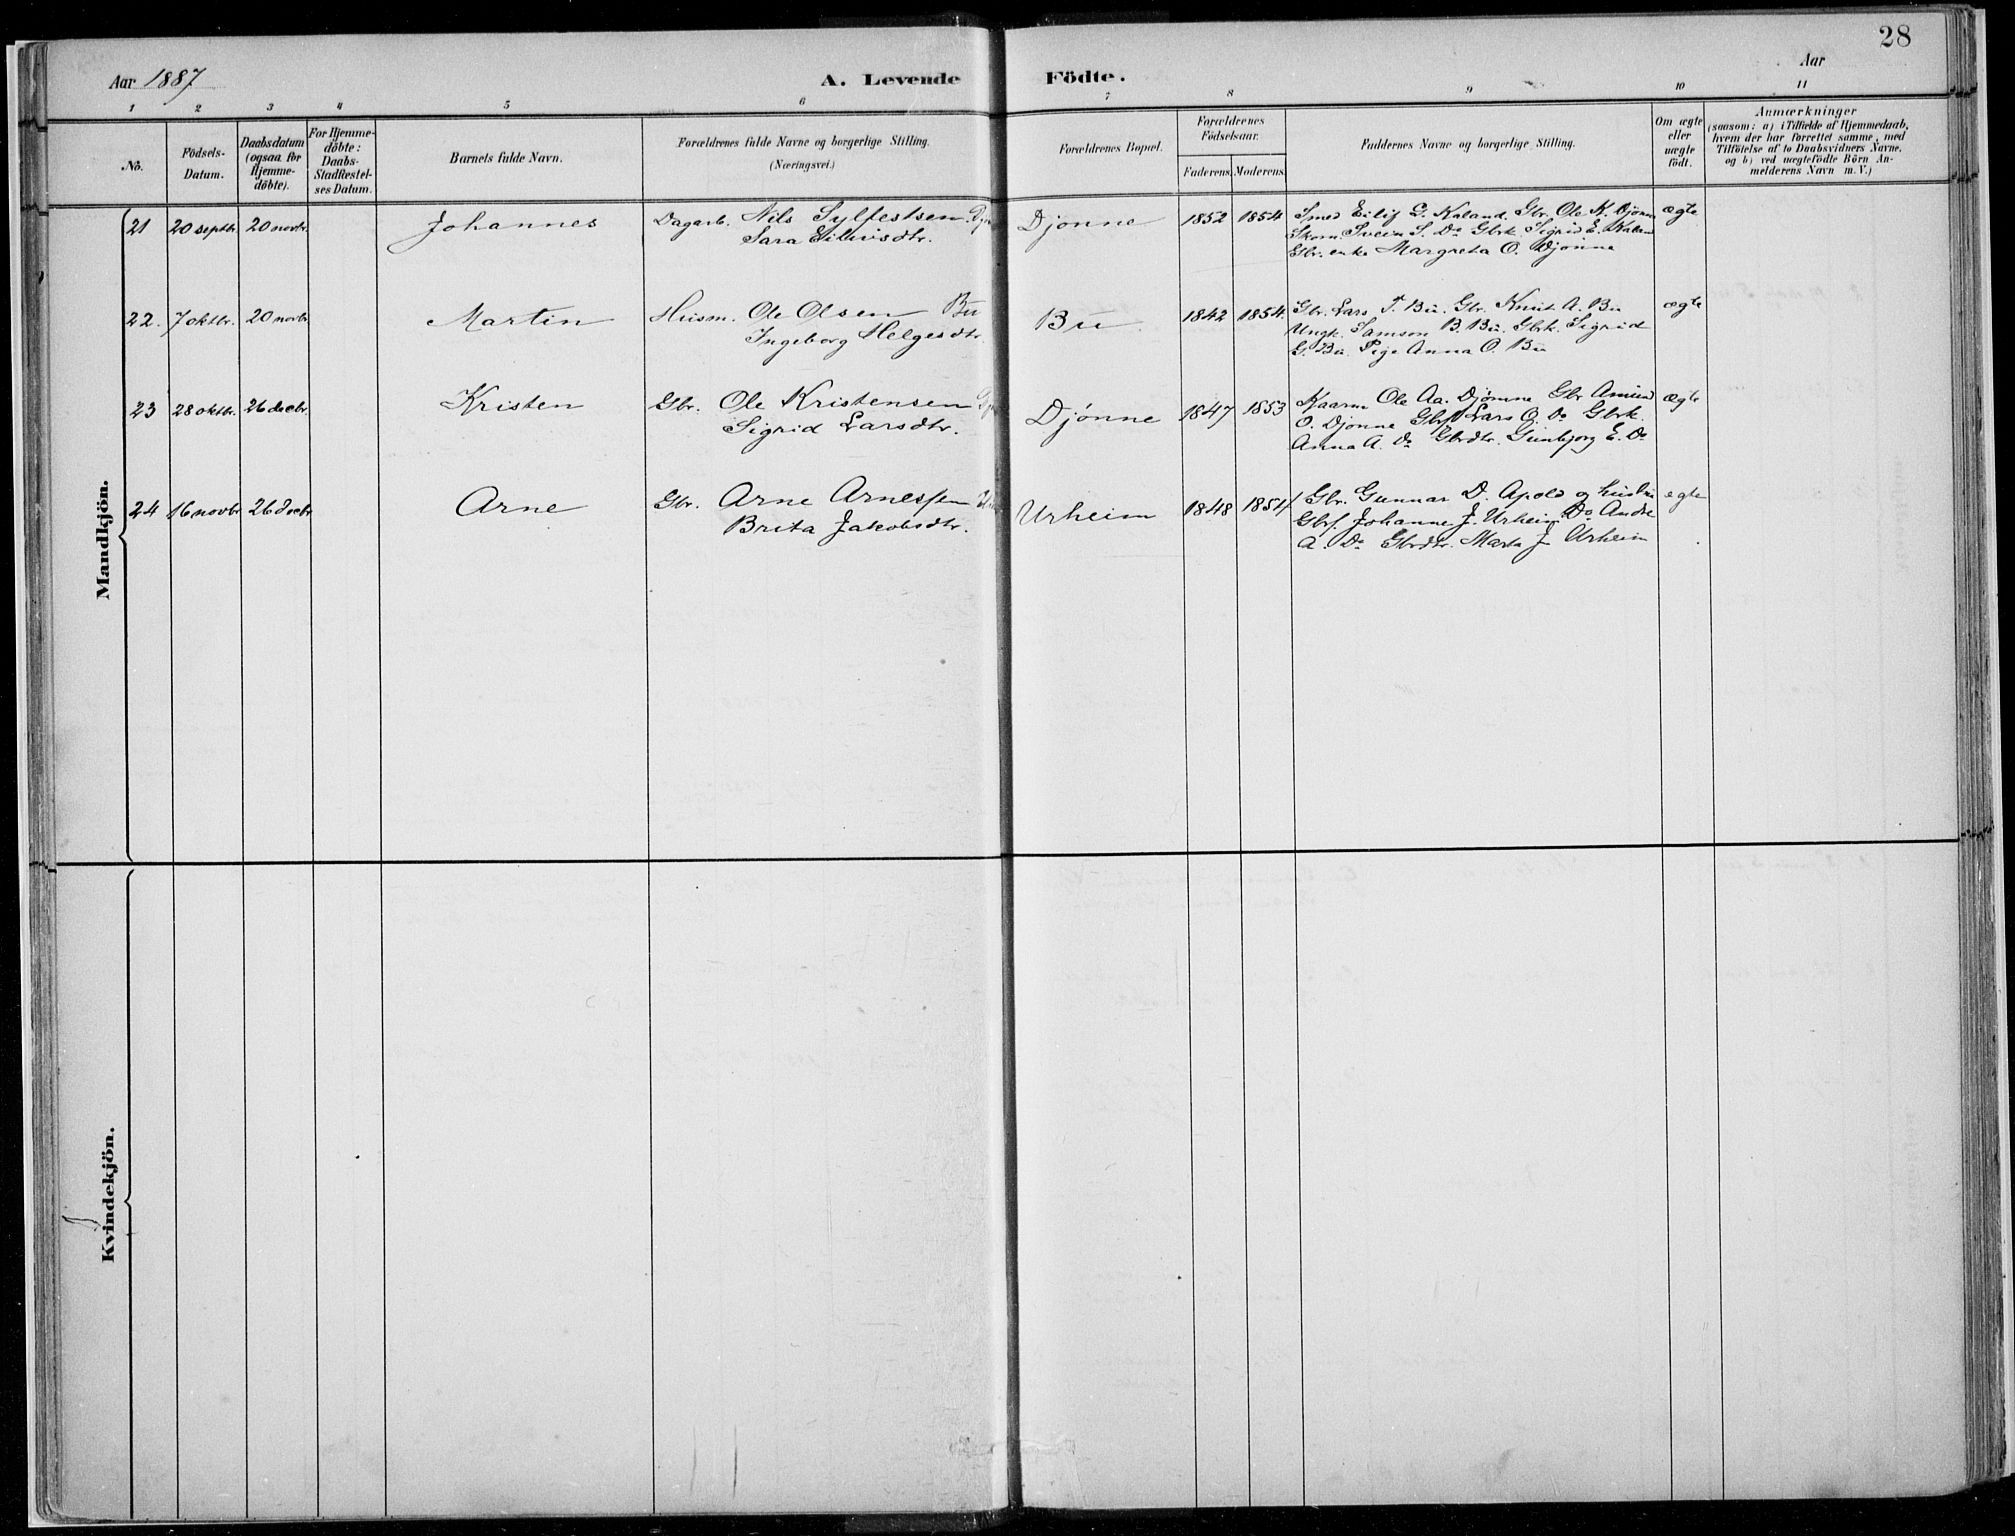 28
Aar 1887
A. Levende Födte.
Aar
1 2 3 4 5 6 7 8 9 10 11
No.
Födsels-Datum.
Daabsdatum (ogsaa for Hjemme-döbte).
For Hjemme-döbte: Daabs-Stadfæstel-ses Datum.
Barnets fulde Navn.
Forældrenes fulde Navne og borgerlige Stilling. (Næringsvei.)
Forældrenes Bopæl.
Forældrenes Födselsaar.
Faderens. Moderens.
Faddernes Navne og borgerlige Stilling.
Om ægte eller uægte födt.
Anmærkninger
(saasom: a) i Tilfælde af Hjemmedaab,
hvem der har forrettet samme, med
Tilföielse af to Daabsvidners Navne,
og b) ved uægtefödte Börn An-
melderens Navn m. V.)
Mandkjön.
21 20 septbr. 20 novbr. Johannes Dagarb. Nils Sylfestsen Djönne 1852 1854 Smed Eilif L. Kaland. Gbr. Ole K. Djönne ægte
Sara Eilivsdtr. Skom. Svein S. Do Gbrk. Sigrid E. Kaland
Gbr. enke Margreta O. Djönne
22. 7 oktbr. 20 novbr. Martin Husm. Ole Olsen Bu Bu 1842 1854. Gbr. Lars T. Bu. Gbr. Knut A. Bu ægte
Ingeborg Helgesdtr. Ungk. Samson B. Bu. Gbrk. Sigrid
G. Bu. Pige Anna O. Bu
23 28 oktbr. 26 decbr. Kristen Gbr. Ole Kristensen Djönne 1847 1853 Kaarm Ole Aa. Djönne Gbr Amund ægte
Sigrid Larsdtr. O. Djönne Gbrf Lars O. Do Gbrk.
Anna A. Do Gbrdtr. Gunbjorg E. Do
24 16 novbr 26 decbr Arne Gbr. Arne Arnessen Urheim 1848 1851 Gbr. Gunnar D. Apold og hustru egte
Brita Jakobsdtr. Gbrf. Johanne J. Urheim Do Andre
A. Do Gbrdtr. Marta J Urheim
Kvindekjön.